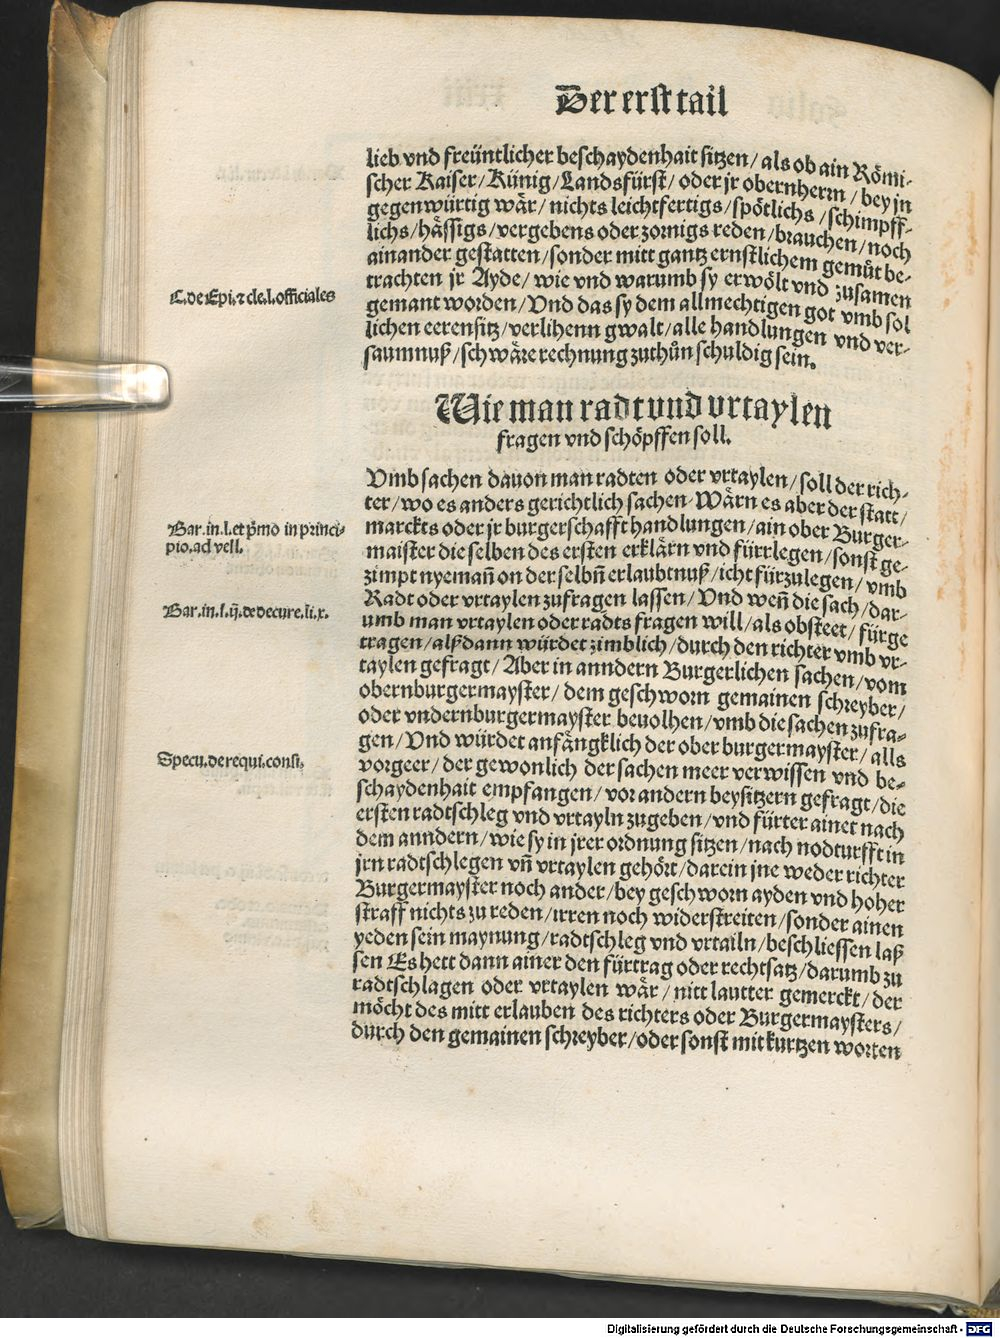 Der erst tail
lieb vnd freüntlicher beschaydenhait sitzen / als ob ain Römi-
scher Kaiser / Künig / Landsfürst / oder jr obernherrn / bey jn
gegenwürtig wär / nichts leichtfertigs / spötlichs / schimpff-
lichs / hässigs / vergebens oder zornigs reden / brauchen / noch
ainander gestatten / sonder mitt gantz ernstlichem gemüt be-
trachten jr Ayde / wie vnd warumb sy erwölt vnd zusamen
C. de Epi. ⁊ cle. l. officiales
gemant worden / Vnd das sy dem allmechtigen got vmb sol
lichen eerensitz / verlihenn gwalt / alle handlungen vnd ver-
saumnuß / schwäre rechnung zuthůn schuldig sein.
Wie man radt vnd vrtaylen
fragen vnd schöpffen soll.
Vmb sachen dauon man radten oder vrtaylen / soll der rich-
ter / wo es anders gerichtlich sachen Wärn es aber der statt /
Bar. in. l. et p̄mo in princi-
pio. ad vell.
marckts oder jr burgerschafft handlungen / ain ober Burger-
maister die selben des ersten erklärn vnd fürrlegen / sonst ge-
zimpt nyemañ on der selbñ erlaubtnuß / icht fürzulegen / vmb
Radt oder vrtaylen zufragen lassen / Vnd weñ die sach / dar-
Bar. in. l. ij. de decure. li. x.
umb man vrtaylen oder radts fragen will / als obsteet / fürge
tragen / alßdann würdet zimblich / durch den richter vmb vr-
taylen gefragt / Aber in anndern Burgerlichen sachen / vom
obernburgermayster / dem geschworn gemainen schreyber /
oder vndernburgermayster beuolhen / vmb die sachen zufra-
gen / Vnd würdet anfängklich der ober burgermayster / alls
Specu. de requi. consi.
vorgeer / der gewonlich der sachen meer verwissen vnd be-
schaydenhait empfangen / vor andern beysitzern gefragt / die
ersten radtschleg vnd vrtayln zugeben / vnd fürter ainer nach
dem anndern / wie sy in jrer ordnung sitzen / nach nodturfft in
jrn radtschlegen vñ vrtaylen gehört / darein jne weder richter
Burgermayster noch ander / bey geschworn ayden vnd hoher
straff nichts zu reden / irren noch widerstreiten / sonder ainen
yeden sein maynung / radtschleg vnd vrtailn / beschliessen laß
sen Es hett dann ainer den fürtrag oder rechtsatz / darumb zu
radtschlagen oder vrtaylen wär / nitt lautter gemerckt / der
möcht des mitt erlauben des richters oder Burgermaysters /
durch den gemainen schreyber / oder sonst mit kurtzen worten
Digitalisierung gefördert durch die Deutsche Forschungsgemeinschaft - DFG